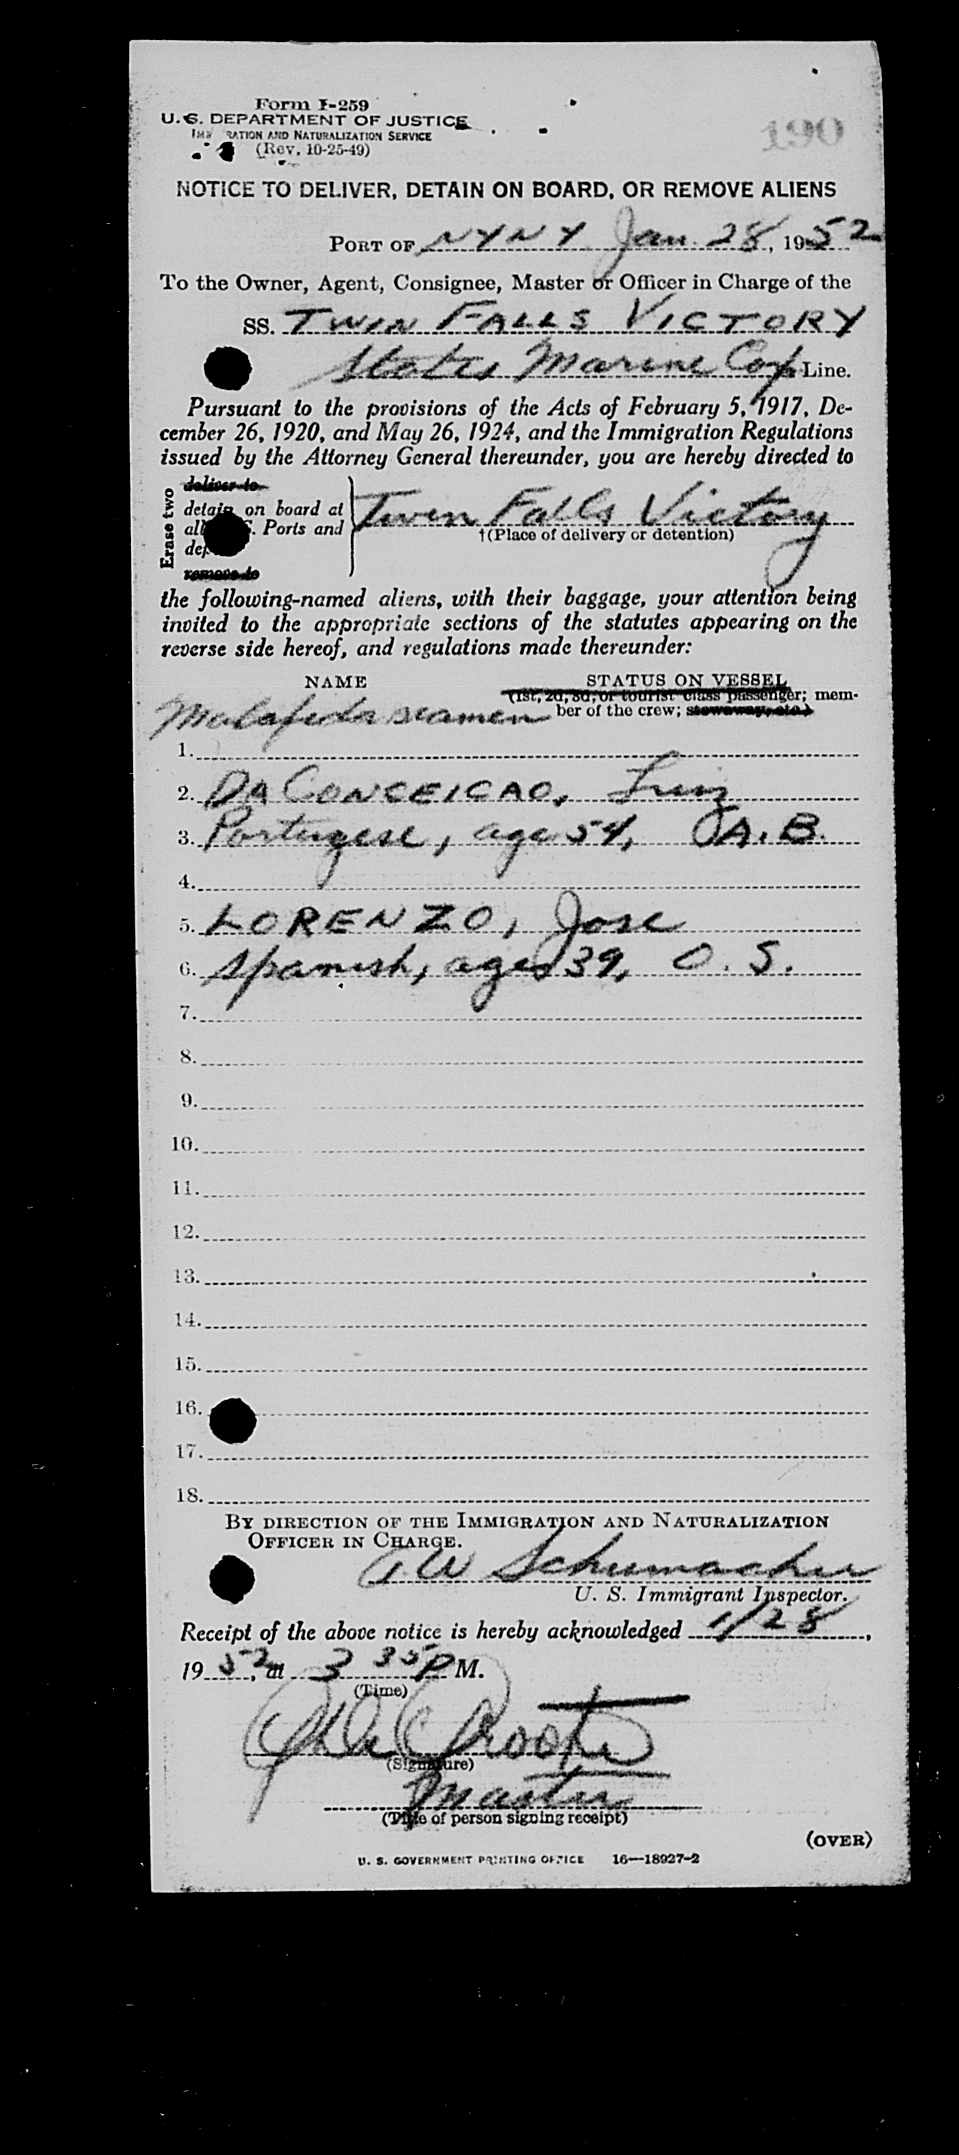 Form I-259
U. S. DEPARTMENT OF JUSTICE
IMMIGRATION AND NATURALIZATION SERVICE
(Rev. 10-25-49)
190
NOTICE TO DELIVER, DETAIN ON BOARD, OR REMOVE ALIENS
PORT OF NYNY. Jan. 28, 1952
To the Owner, Agent, Consignee, Master or Officer in Charge of the
SS. TWIN FALLS VICTORY
States Marine Corp. Line.
Pursuant to the provisions of the Acts of February 5, 1917, De-
cember 26, 1920, and May 26, 1924, and the Immigration Regulations
issued by the Attorney General thereunder, you are hereby directed to
Erase two
deliver to
detain on board at
all U. S. Ports and
remove to
Twin Falls Victory
†(Place of delivery or detention)
the following-named aliens, with their baggage, your attention being
invited to the appropriate sections of the statutes appearing on the
reverse side hereof, and regulations made thereunder:
NAME
STATUS ON VESSEL
(1st, 2d, 3d, or tourist class passenger; mem-
ber of the crew; stowaway, etc.)
Malafeda seamen
1.
2. DA CONCEICAO, Luiz
3. Portugese, age 54, A.B.
4.
5. LORENZO, Jose
6. Spanish, age 39, O.S.
7.
8.
9.
10.
11.
12.
13.
14.
15.
16.
17.
18.
BY DIRECTION OF THE IMMIGRATION AND NATURALIZATION
OFFICER IN CHARGE.
Schumacher
U. S. Immigrant Inspector.
Receipt of the above notice is hereby acknowledged 1/28,
1952, at 3 35 P M.
(Time)
(Signature)
Master
(Title of person signing receipt)
(OVER)
U. S. GOVERNMENT PRINTING OFFICE 16—18927-2